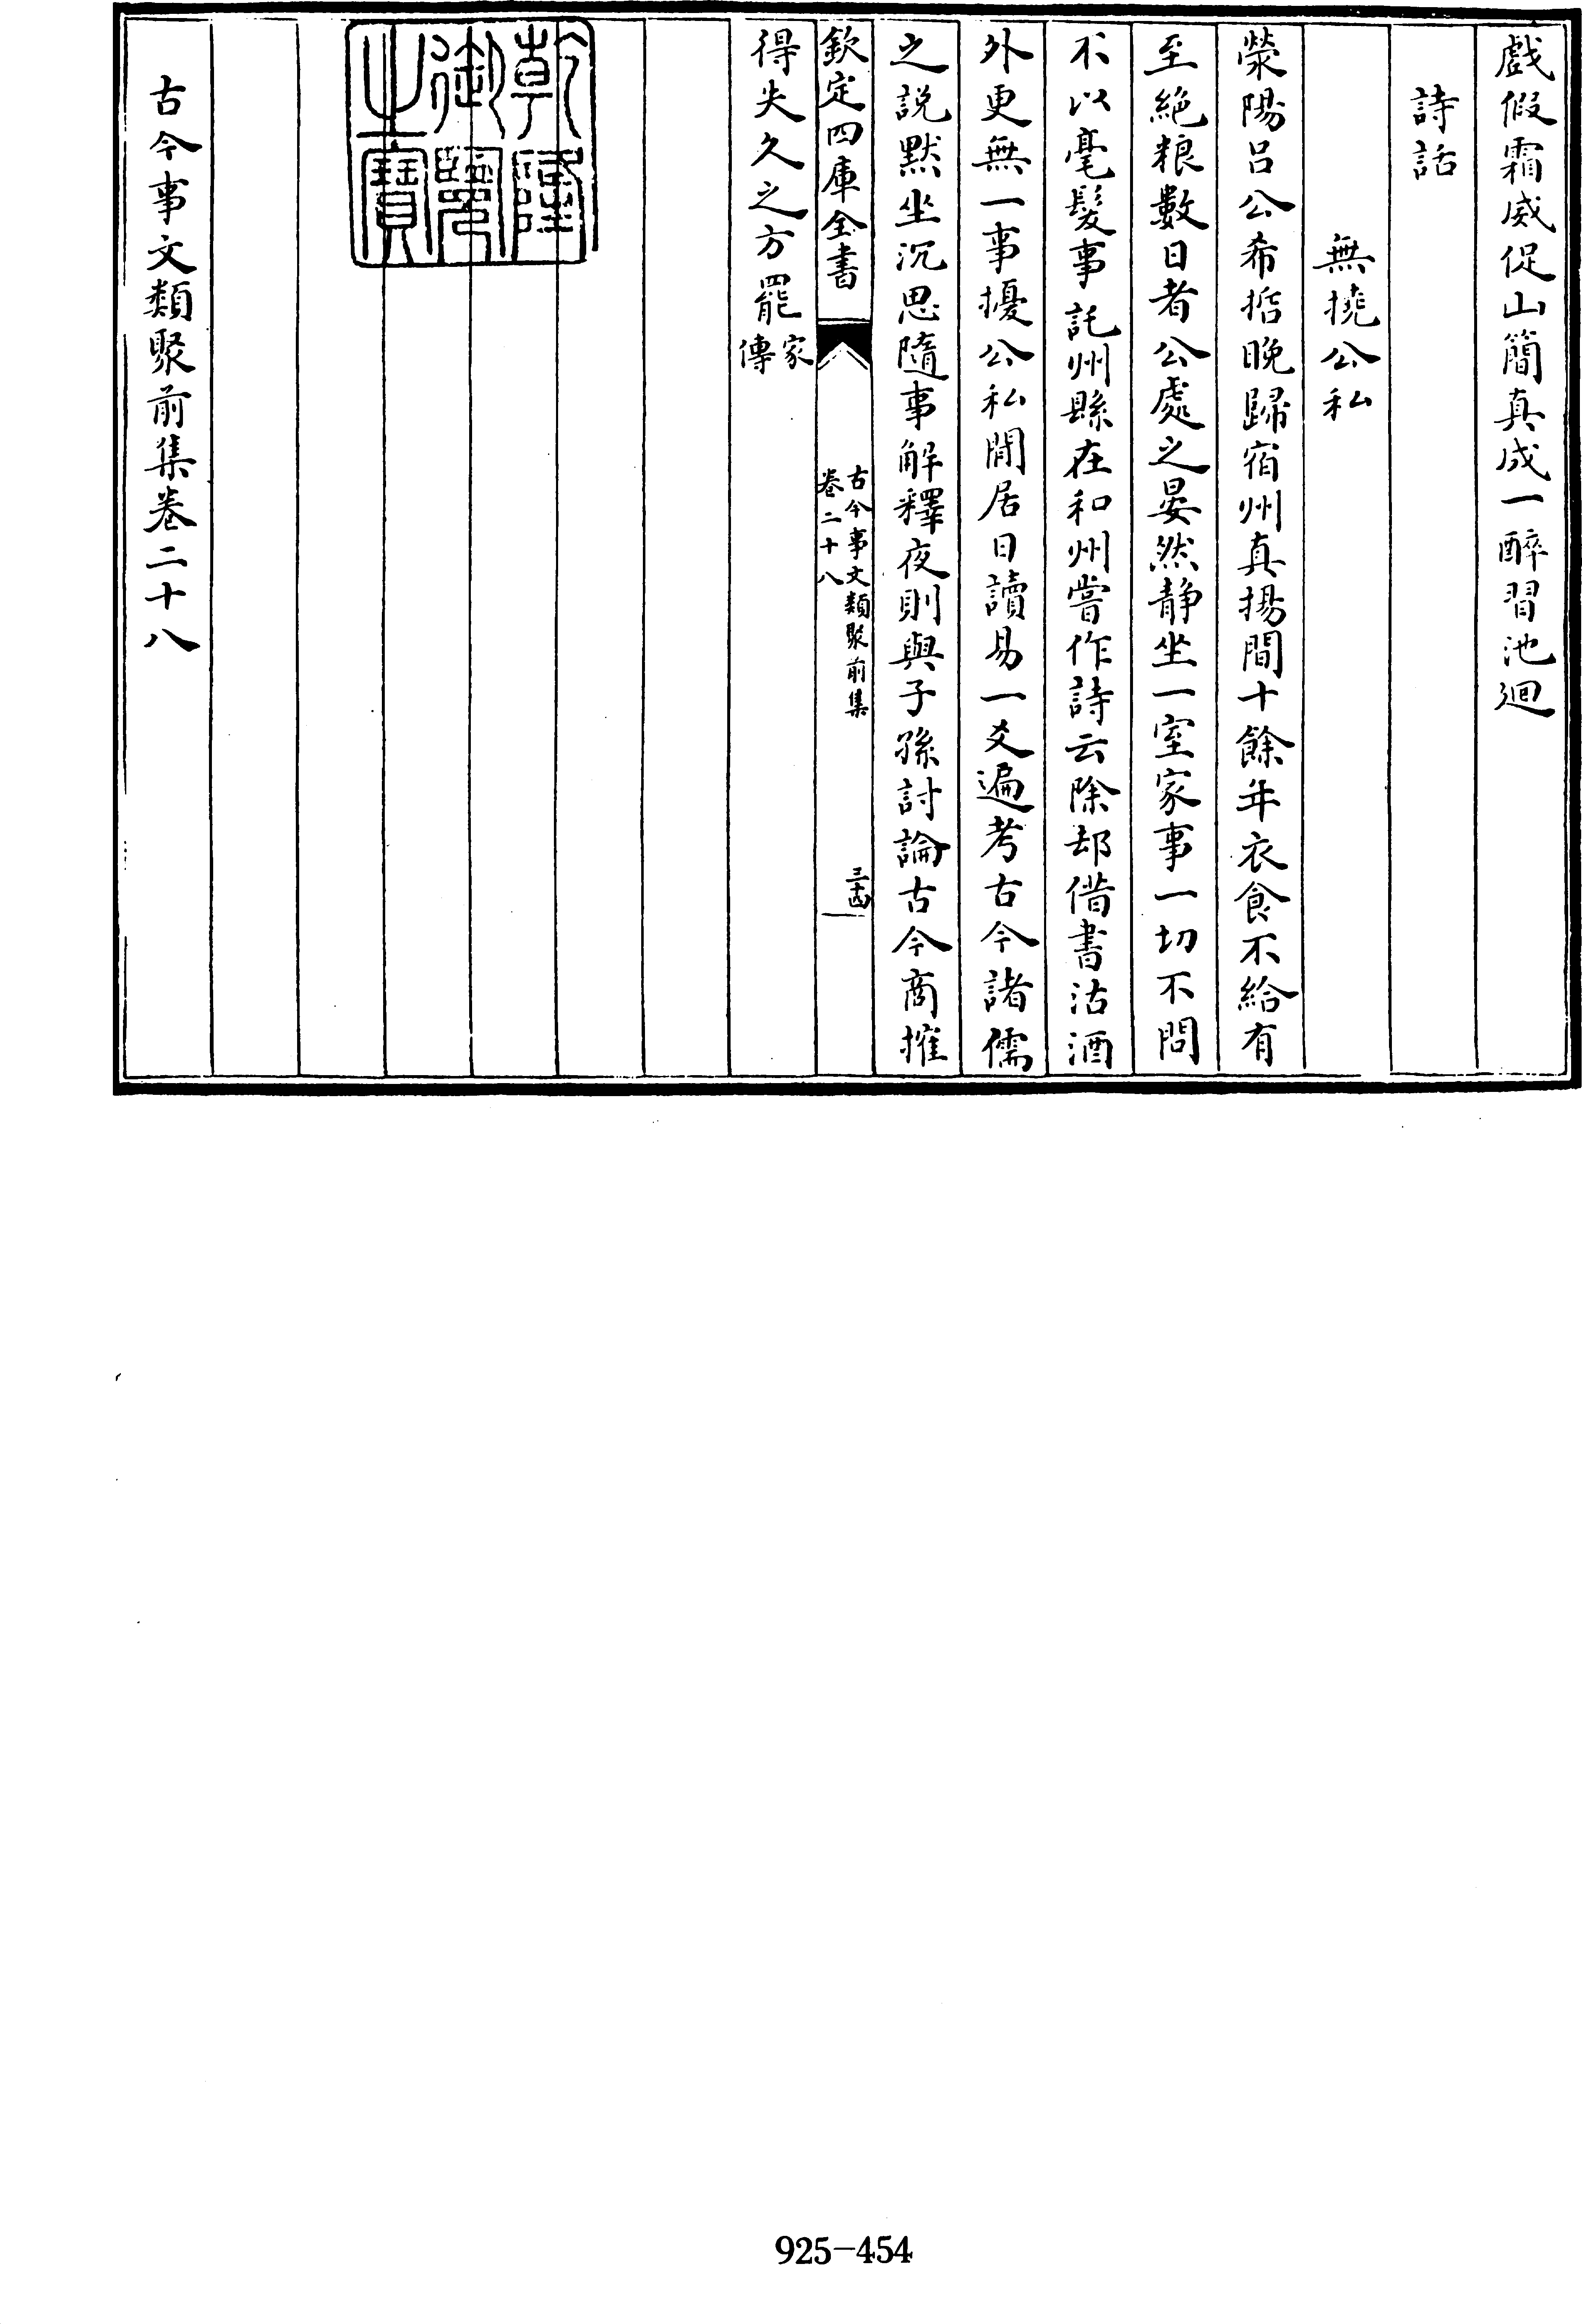 戲假霜威促山簡真成一醉習池迴
詩話
無撓公私
滎陽呂公希哲晚歸宿州真揚間十餘年衣食不給有
至絶粮數日者公處之晏然静坐一室家事一切不問
不以毫髮事託州縣在和州嘗作詩云除却借書沽酒
外更無一事擾公私閒居日讀易一爻遍考古今諸儒
之説默坐沉思隨事解釋夜則與子孫討論古今商搉
欽定四庫全書
古今事文類聚前集
卷二十八
三十四
得失久之方罷家傳
乾隆御覽之寶
古今事文類聚前集卷二十八
925-454